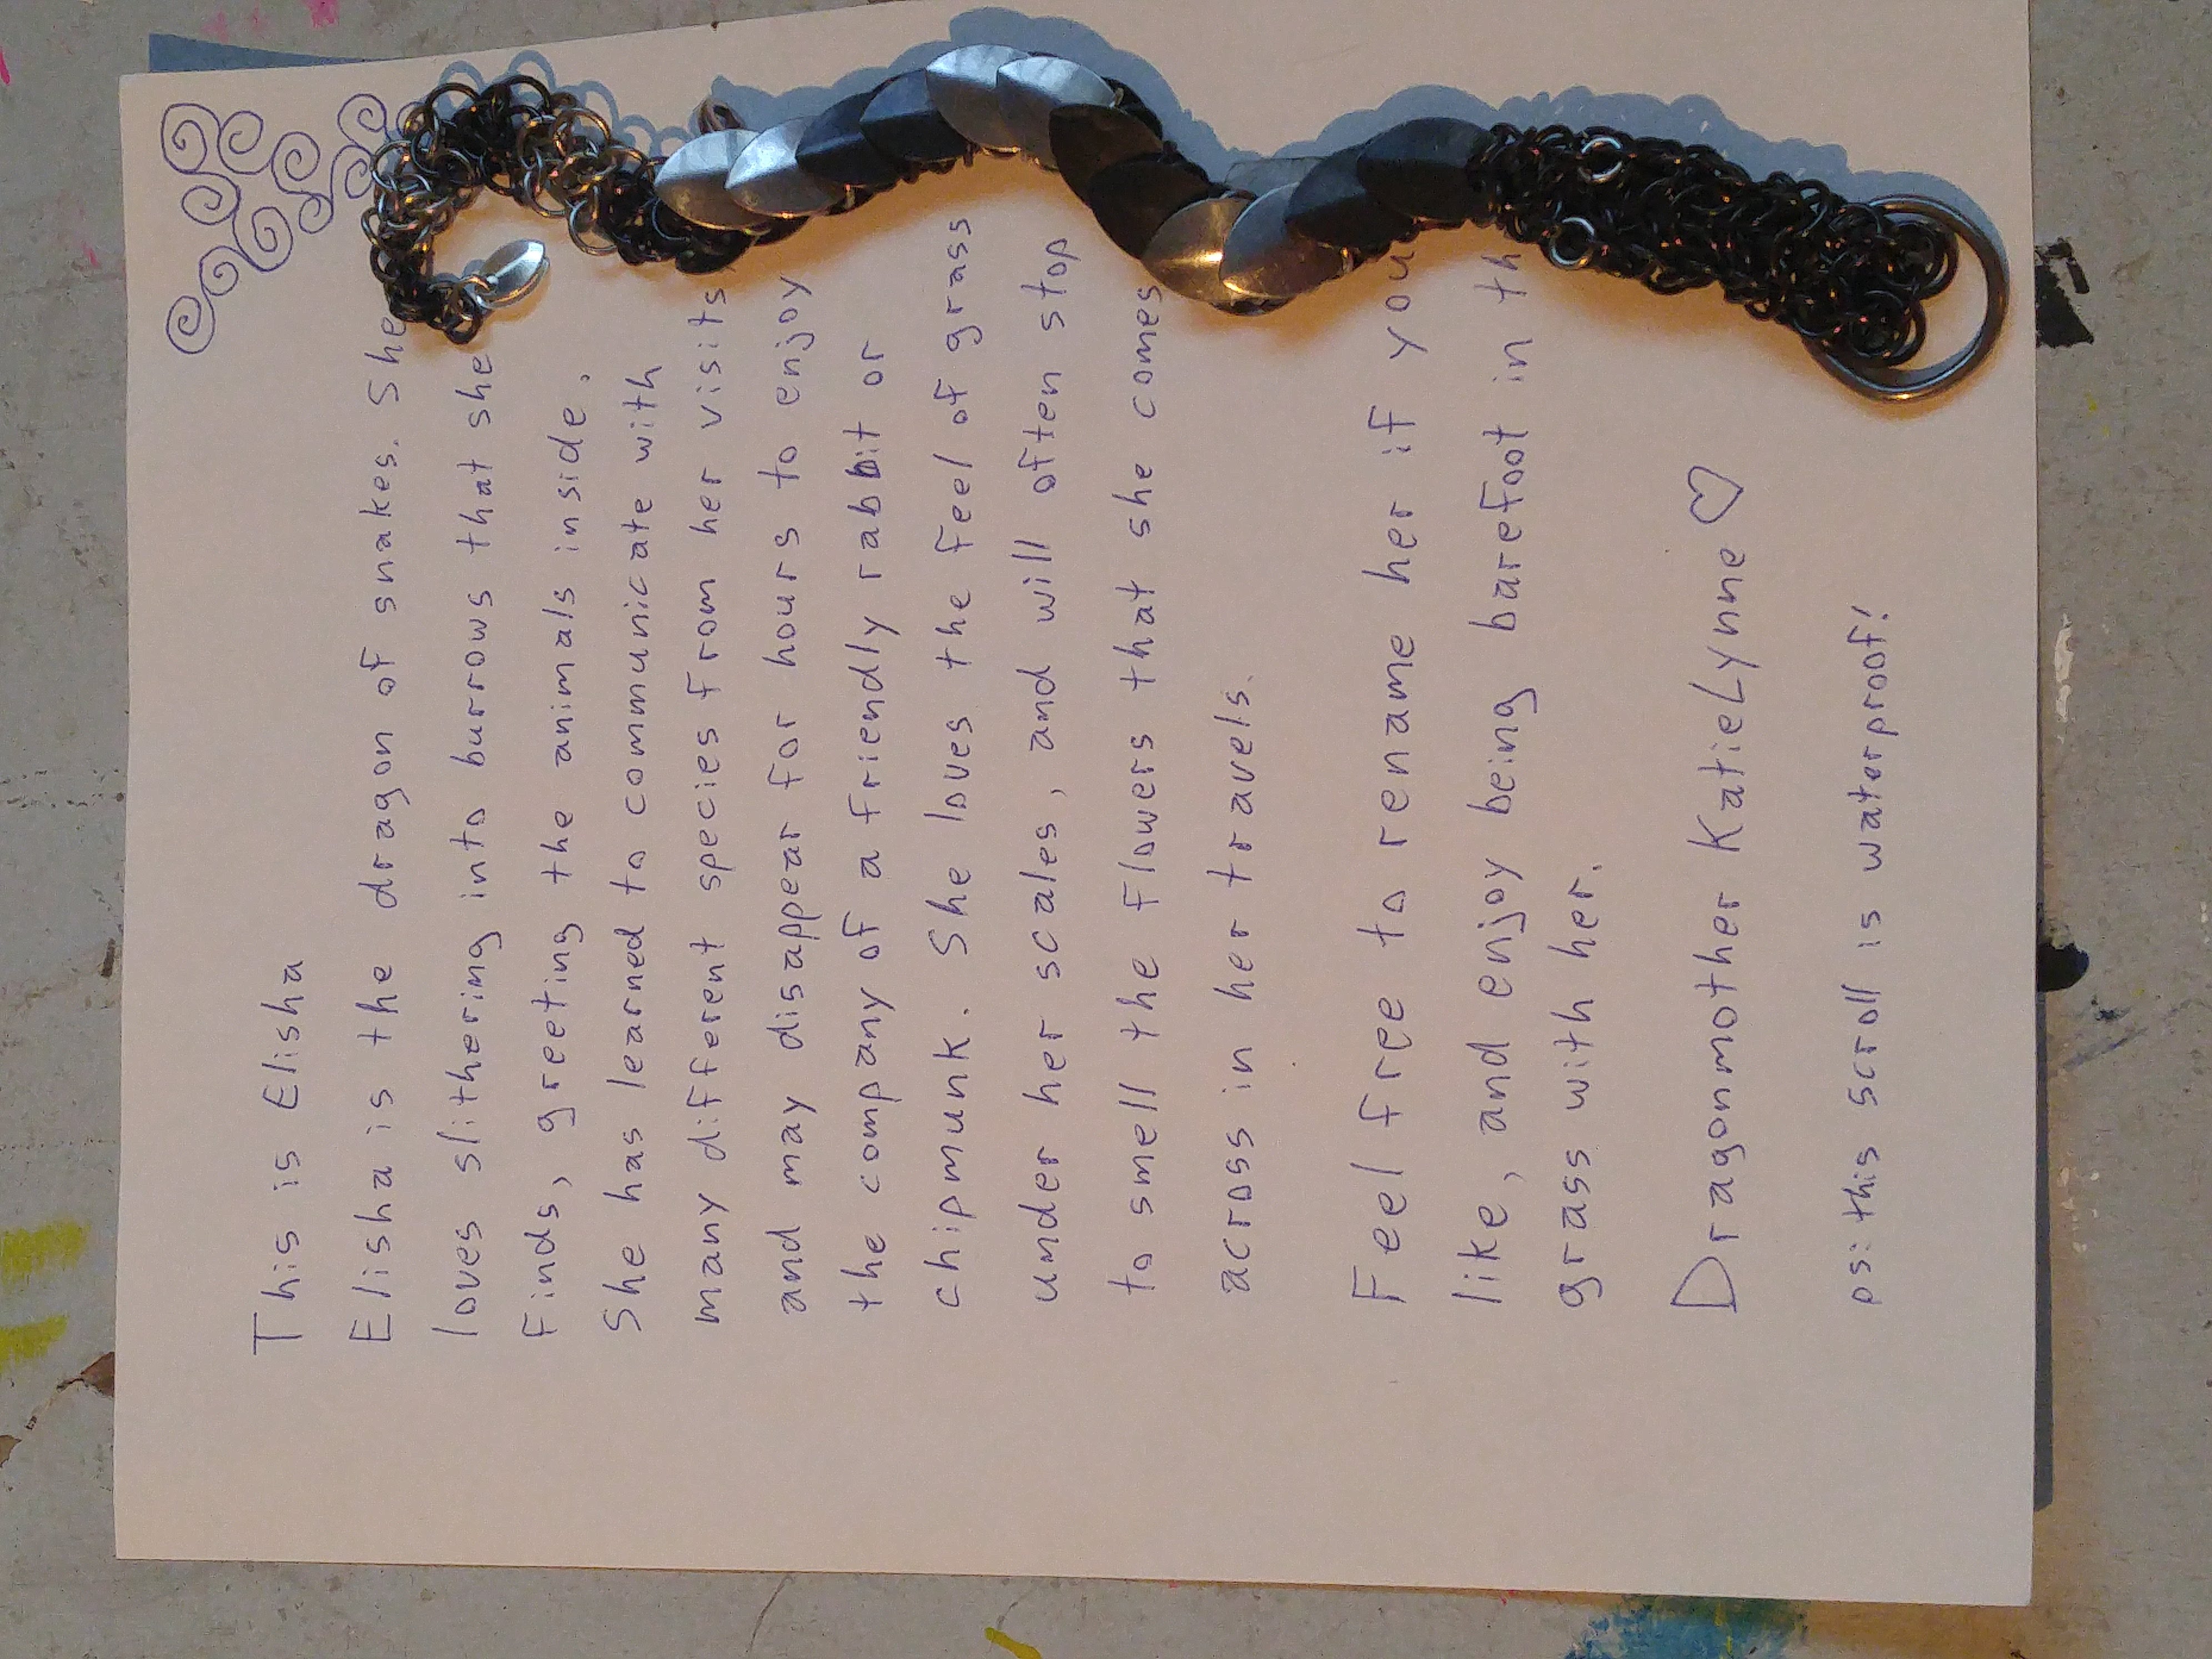 This is Elisha
Elisha is the dragon of snakes. She
loves slithering into burrows that she
finds, greeting the animals inside.
She has learned to communicate with
many different species from her visits
and may disappear for hours to enjoy
the company of a friendly rabbit or
chipmunk. She loves the feel of grass
under her scales, and will often stop
to smell the flowers that she comes
across in her travels.
Feel free to rename her if you
like, and enjoy being barefoot in th
grass with her.
Dragonmother KatieLynne ♡
ps: this scroll is waterproof!